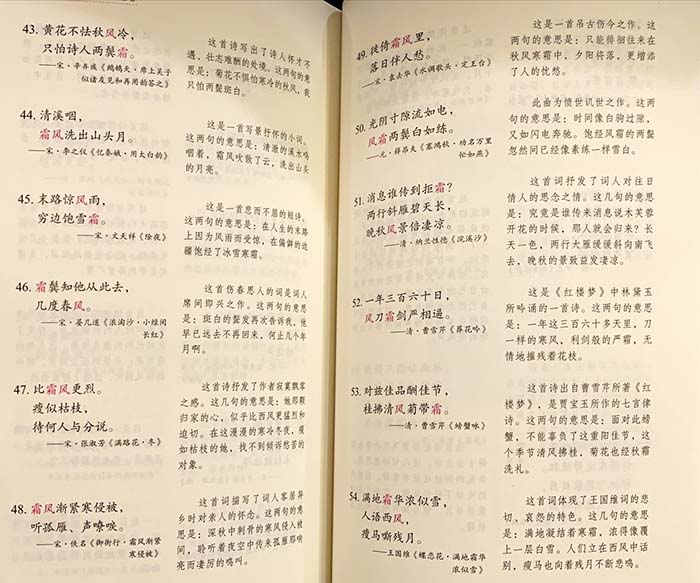 43. 黄花不怯秋风冷，
只怕诗人两鬓霜。
——宋·辛弃疾《鹧鸪天·席上吴子
似诸友见和再用韵答之》
这首诗写出了诗人怀才不
遇、壮志难酬的处境。这两句的意
思是：菊花不惧怕寒冷的秋风，我
只怕两鬓斑白。
44. 清溪咽，
霜风洗出山头月。
——宋·李之仪《忆秦娥·用太白韵》
这是一首写景抒怀的小词。
这两句的意思是：清澈的溪水呜
咽着，霜风吹散了云，洗出山头
的月亮。
45. 末路惊风雨，
穷边饱雪霜。
——宋·文天祥《除夜》
这是一首悲而不屈的短诗。
这两句的意思是：在人生的末路
上因为风雨而受惊，在偏僻的边
疆饱经了冰雪寒霜。
46. 霜鬓知他从此去，
几度春风。
——宋·晏几道《浪淘沙·小绿间
长红》
这首伤春思人的词是词人
席间即兴之作。这两句的意思
是：斑白的鬓发再次告诉我，他
早已远去不再回来，何止几个年
月啊。
47. 比霜风更烈。
瘦似枯枝，
待何人与分说。
——宋·张淑芳《满路花·冬》
这首诗抒发了作者寂寞飘零
之感。这几句的意思是：她那颗
归家的心，似乎比西风更猛烈和
迫切。在这漫漫的寒冷冬夜，瘦
如枯枝的她，找不到倾诉愁苦的
对象。
48. 霜风渐紧寒侵被，
听孤雁、声嘹唳。
——宋·佚名《御街行·霜风渐紧
寒侵被》
这首词描写了词人客居异
乡时对亲人的怀念。这两句的意
思是：深秋中刺骨的寒风侵入被
间，聆听着夜空中传来孤雁那响
亮而凄厉的鸣叫。
49. 徒倚霜风里，
落日伴人愁。
——宋·袁去华《水调歌头·定王台》
这是一首吊古伤今之作。这
两句的意思是：只能徘徊往来在
秋风寒霜中，夕阳将落，更增添
了人的忧愁。
50. 光阴寸隙流如电，
风霜两鬓白如练。
——元·薛昂夫《塞鸿秋·功名万里
忙如燕》
此曲为愤世讥世之作。这两
句的意思是：时间像白驹过隙，
又如闪电奔驰。饱经风霜的两鬓
忽然间已经像素练一样雪白。
51. 消息谁传到拒霜？
两行斜雁碧天长，
晚秋风景倍凄凉。
——清·纳兰性德《浣溪沙》
这首词抒发了词人对往日
情人的思念之情。这几句的意思
是：究竟是谁传来消息说木芙蓉
开花的时候，那人就会归来？长
天一色，两行大雁缓缓斜向南飞
去，晚秋的景致益发凄凉。
52. 一年三百六十日，
风刀霜剑严相逼。
——清·曹雪芹《葬花吟》
这是《红楼梦》中林黛玉
所吟诵的一首诗。这两句的意思
是：一年这三百六十多天里，刀
一样的寒风，利剑般的严霜，无
情地摧残着花枝。
53. 对兹佳品酬佳节，
桂拂清风菊带霜。
——清·曹雪芹《螃蟹咏》
这首诗出自曹雪芹所著《红
楼梦》，是贾宝玉所作的七言律
诗。这两句的意思是：面对此螃
蟹，不能辜负了这重阳佳节，这
个季节清风拂桂，菊花也经秋霜
洗礼。
54. 满地霜华浓似雪，
人语西风，
瘦马嘶残月。
——王国维《蝶恋花·满地霜华
浓似雪》
这首词体现了王国维词的悲
切、哀怨的特色。这几句的意思
是：满地凝结着寒霜，浓得像覆
上一层白雪。人们立在西风中话
别，瘦马也向着残月不断悲鸣。